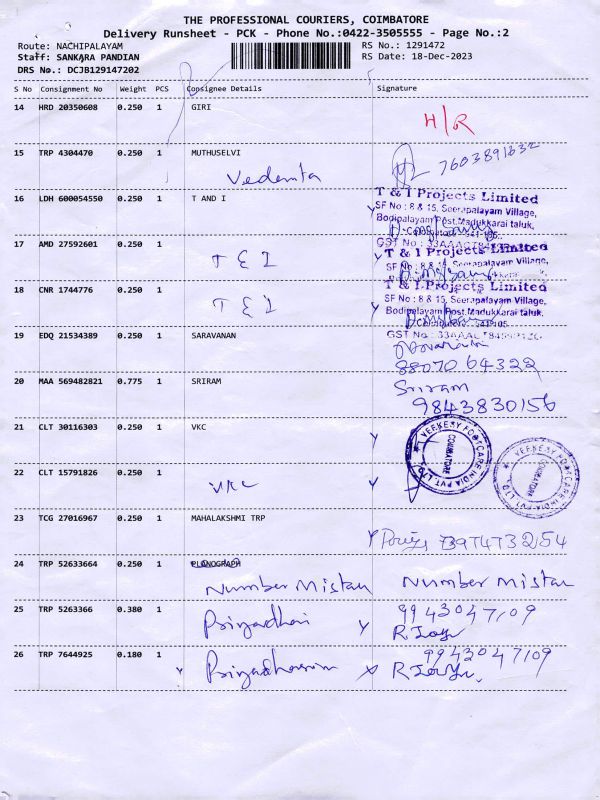 THE PROFESSIONAL COURIERS, COIMBATORE
Delivery Runsheet - PCK - Phone No.:0422-3505555 - Page No.:2
Route: NACHIPALAYAM RS No.: 1291472
Staff: SANKARA PANDIAN RS Date: 18-Dec-2023
DRS No.: DCJB129147202
S No Consignment No Weight PCS Consignee Details Signature
14 HRD 20350608 0.250 1 GIRI H/R
15 TRP 4304470 0.250 1 MUTHUSELVI
Vedanta
16 LDH 600054550 0.250 1 T AND I
T & I Projects Limited
SF No : 8 & 15, Seerapalayam Village,
Bodipalayam Post, Madukkarai taluk,
17 AMD 27592601 0.250 1
T & I
T & I Projects Limited
18 CNR 1744776 0.250 1
T & I
T & I Projects Limited
SF No : 8 & 15, Seerapalayam Village,
Bodipalayam Post, Madukkarai taluk,
19 EDQ 21534389 0.250 1 SARAVANAN
8807064322
20 MAA 569482821 0.775 1 SRIRAM Sriram
9843830156
21 CLT 30116303 0.250 1 VKC
VEEKESY FOOTCARE INDIA PVT. LTD
COIMBATORE
22 CLT 15791826 0.250 1
VKC
VEEKESY FOOTCARE INDIA PVT. LTD
COIMBATORE
23 TCG 27016967 0.250 1 MAHALAKSHMI TRP
24 TRP 52633664 0.250 1 PLANOGRAPH
Number Mistak Number Mistak
25 TRP 5263366 0.380 1 9943047109
26 TRP 7644925 0.180 1 9943047109